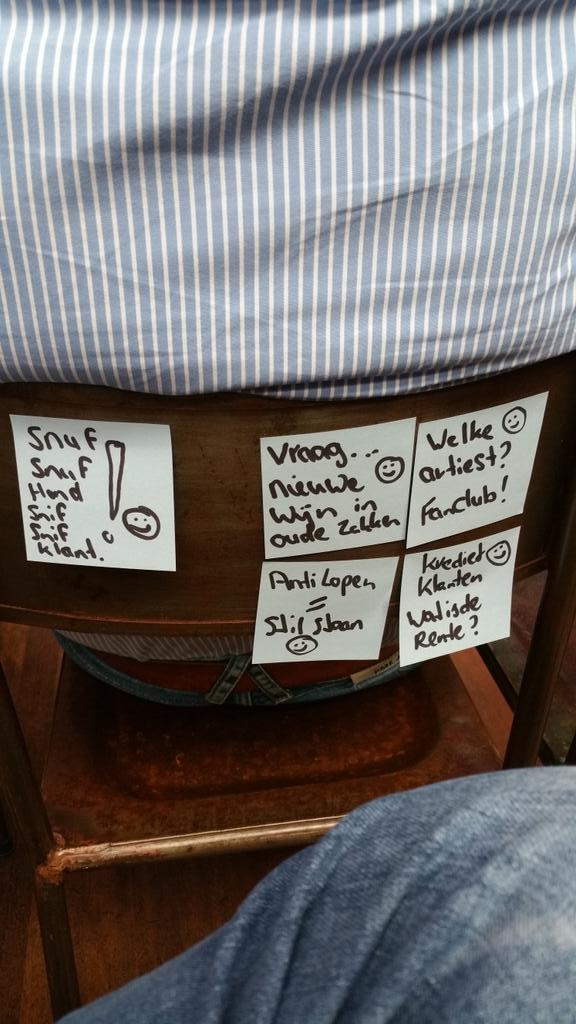 Snuf
Snuf
Hond
Snif
Snif
Klant.
!
Vraag...
nieuwe
Wijn in
oude Zakken
Welke
artiest?
Fanclub!
Anti Lopen
=
Stil staan
Krediet
Klanten
Wat is de
Rente?